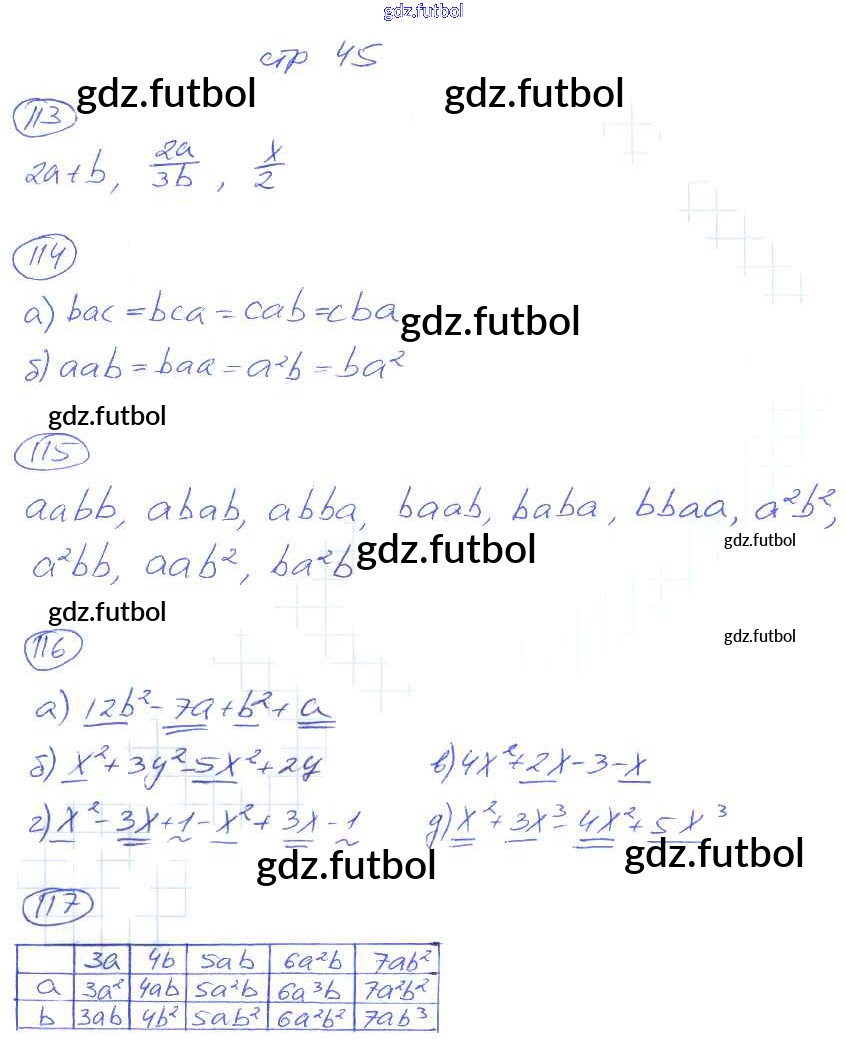 gdz.futbol
стр 45
gdz.futbol gdz.futbol
113
2a+b, 2a/3b, x/2
114
а) bac = bca = cab = cba
gdz.futbol
б) aab = baa = a²b = ba²
gdz.futbol
115
aabb, abab, abba, baab, baba, bbaa, a²b²,
gdz.futbol
a²bb, aab², ba²b
gdz.futbol
gdz.futbol
gdz.futbol
116
а) 12b² - 7a + b² + a
б) x² + 3y² - 5x² + 2y в) 4x² + 2x - 3 - x
г) x² - 3x + 1 - x² + 3x - 1 д) x² + 3x³ - 4x² + 5x³
gdz.futbol gdz.futbol
117
3a 4b 5ab 6a²b 7ab²
a 3a² 4ab 5a²b 6a³b 7a²b²
b 3ab 4b² 5ab² 6a²b² 7ab³